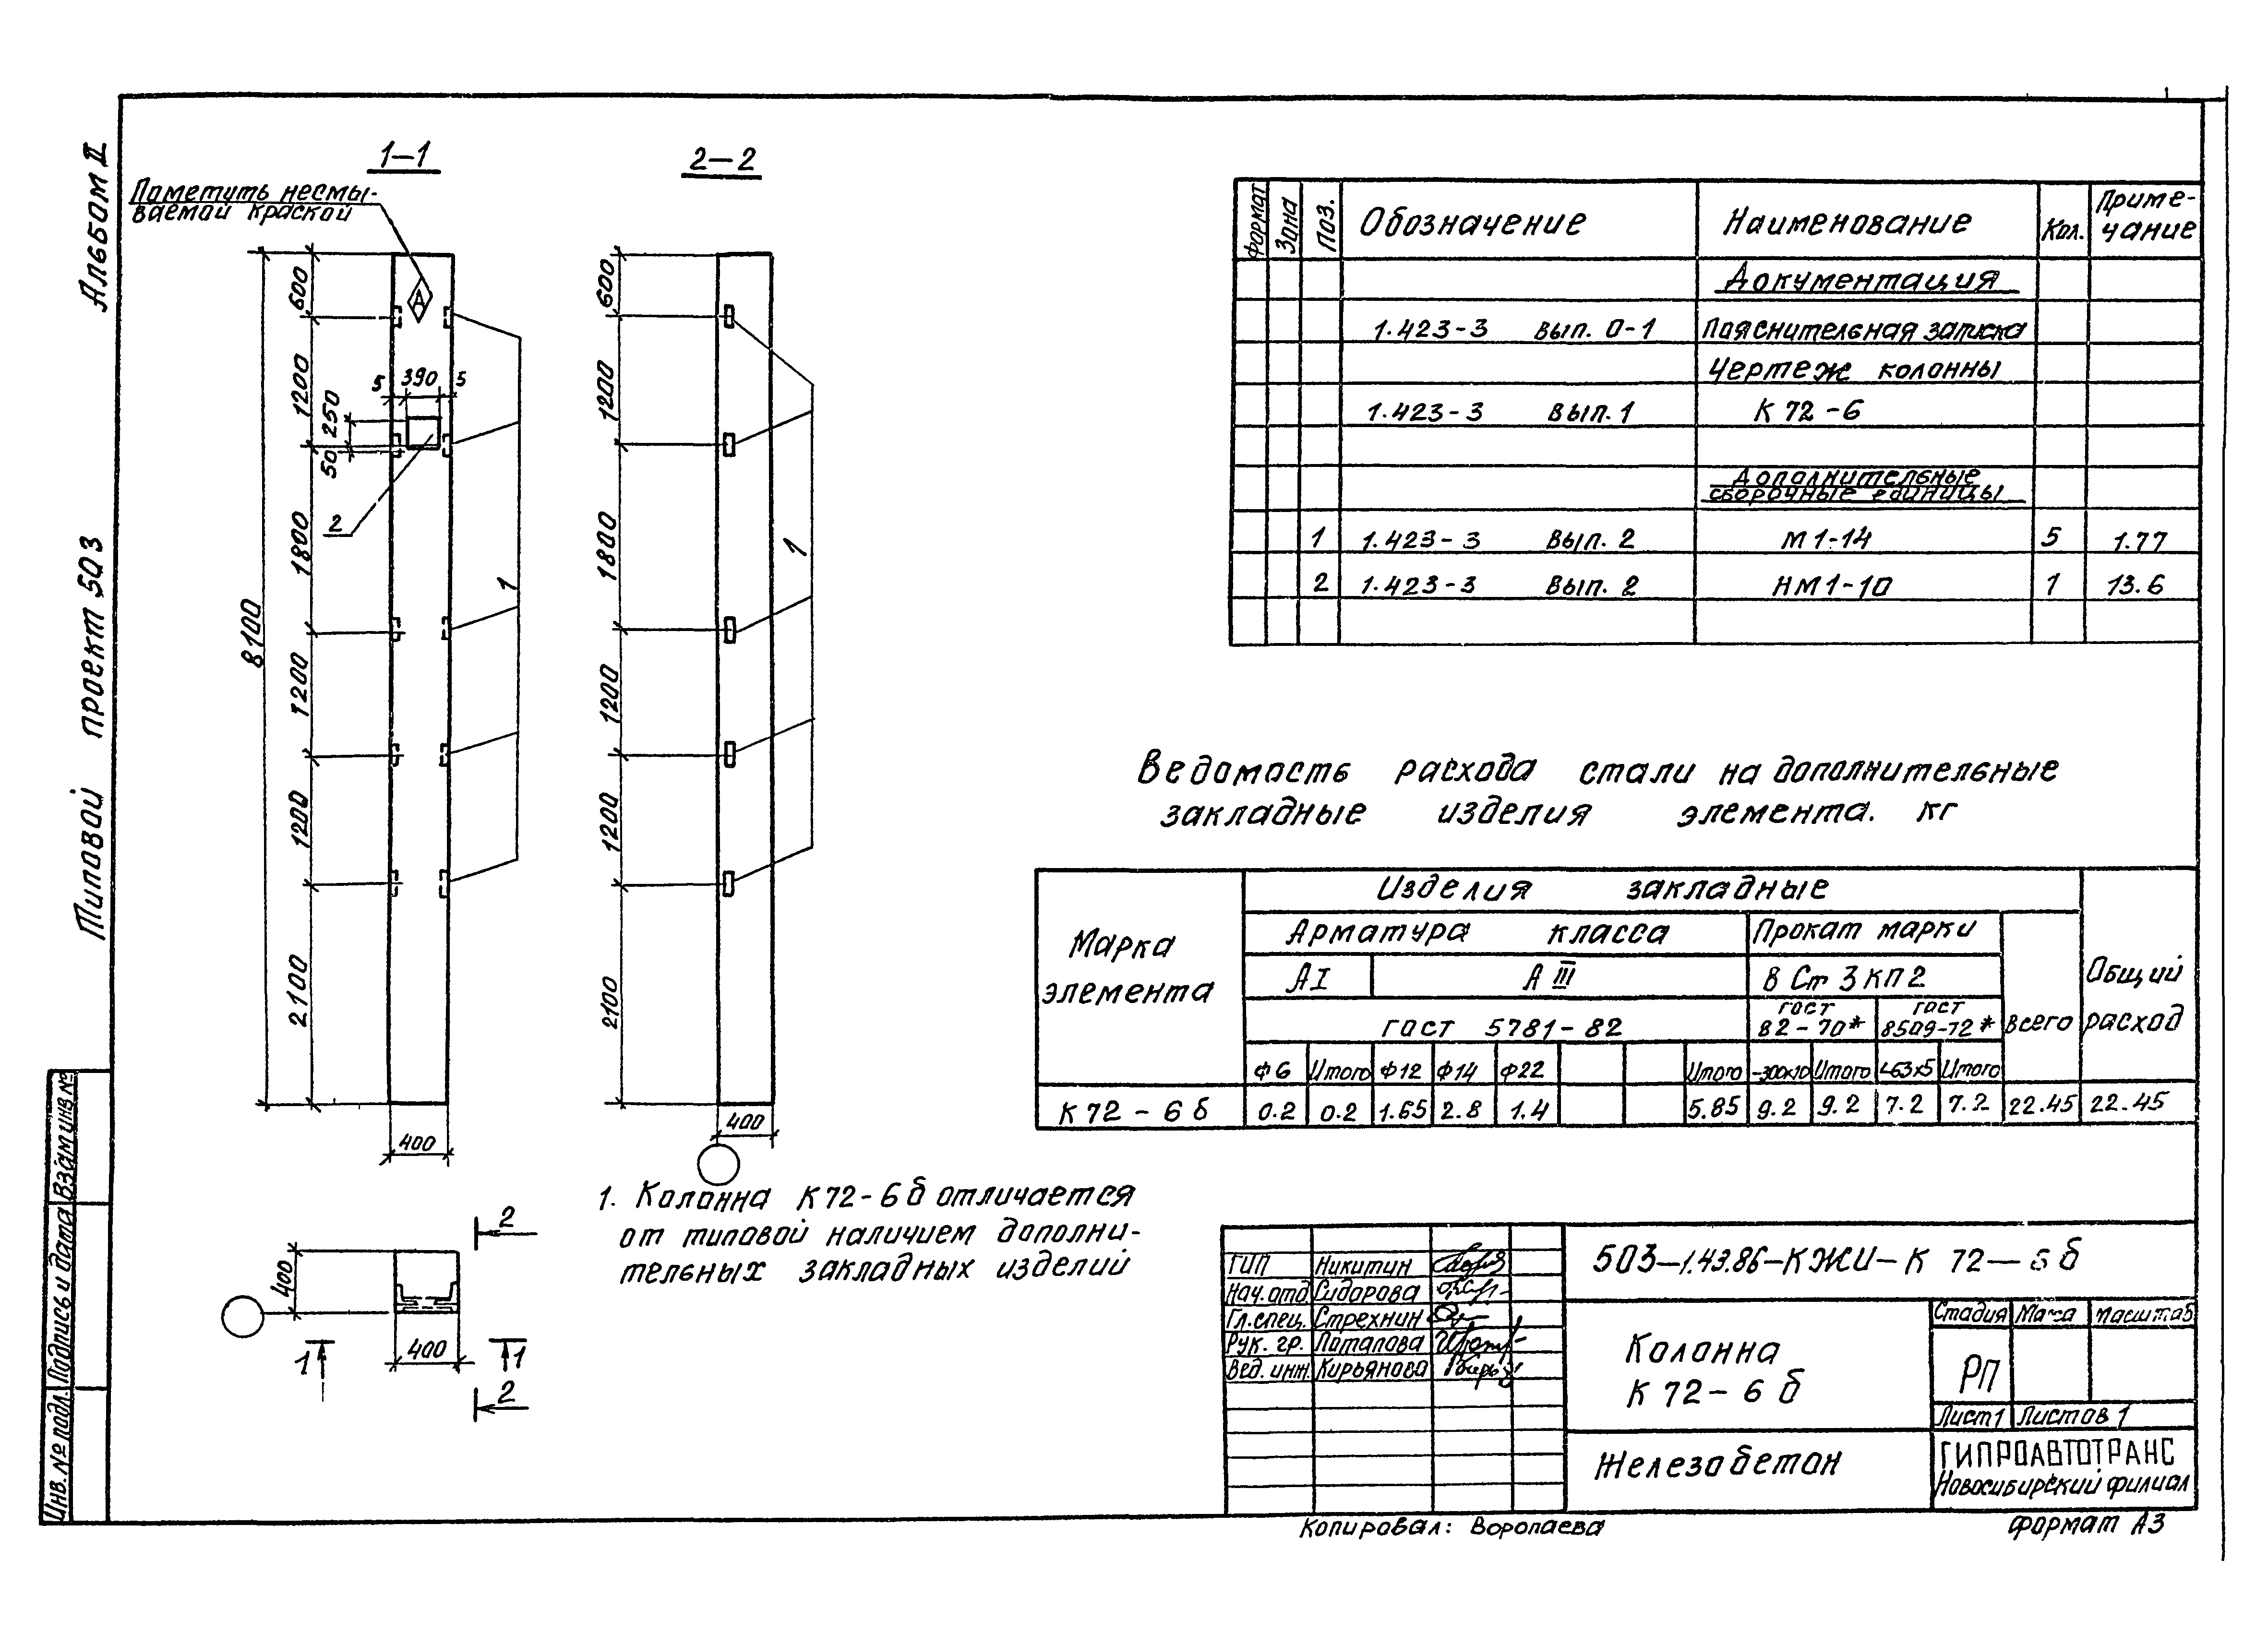 Альбом II
Типовой проект 503
1–1
2–2
Пометить несмы-
ваемой краской
А
8100
600
1200
1800
1200
1200
2100
5 390 5
250
50
2
1
400
600
1200
1800
1200
1200
2100
1
400
400
400
1 1
2
2
1. Колонна К72-6б отличается
от типовой наличием дополни-
тельных закладных изделий
Формат Зона Поз. Обозначение Наименование Кол. Приме-
чание
Документация
1.423-3 Вып. 0-1 Пояснительная записка
Чертеж колонны
1.423-3 Вып. 1 К 72-6
Дополнительные
сборочные единицы
1 1.423-3 Вып. 2 М1-14 5 1.77
2 1.423-3 Вып. 2 НМ1-10 1 13.6
Ведомость расхода стали на дополнительные
закладные изделия элемента. кг
Марка
элемента
Изделия закладные
Арматура класса Прокат марки
АI АIII В Ст 3 кп 2
ГОСТ 5781-82 ГОСТ
82-70* ГОСТ
8509-72* Всего Общий
расход
Ф6 Итого Ф12 Ф14 Ф22 Итого -300х10 Итого L63х5 Итого
К 72-6б 0.2 0.2 1.65 2.8 1.4 5.85 9.2 9.2 7.2 7.2 22.45 22.45
503-1.43.86-КЖИ-К 72-6б
ГИП Никитин
Нач. отд Сидорова
Гл. спец. Стрехнин
Рук. гр. Потапова
Вед. инж. Кирьянова
Колонна
К 72-6б
Стадия Масса Масштаб
РП
Лист 1 Листов 1
Железобетон
ГИПРОАВТОТРАНС
Новосибирский филиал
Копировал: Воропаева
Формат А3
Инв. № подл. Подпись и дата Взам инв №